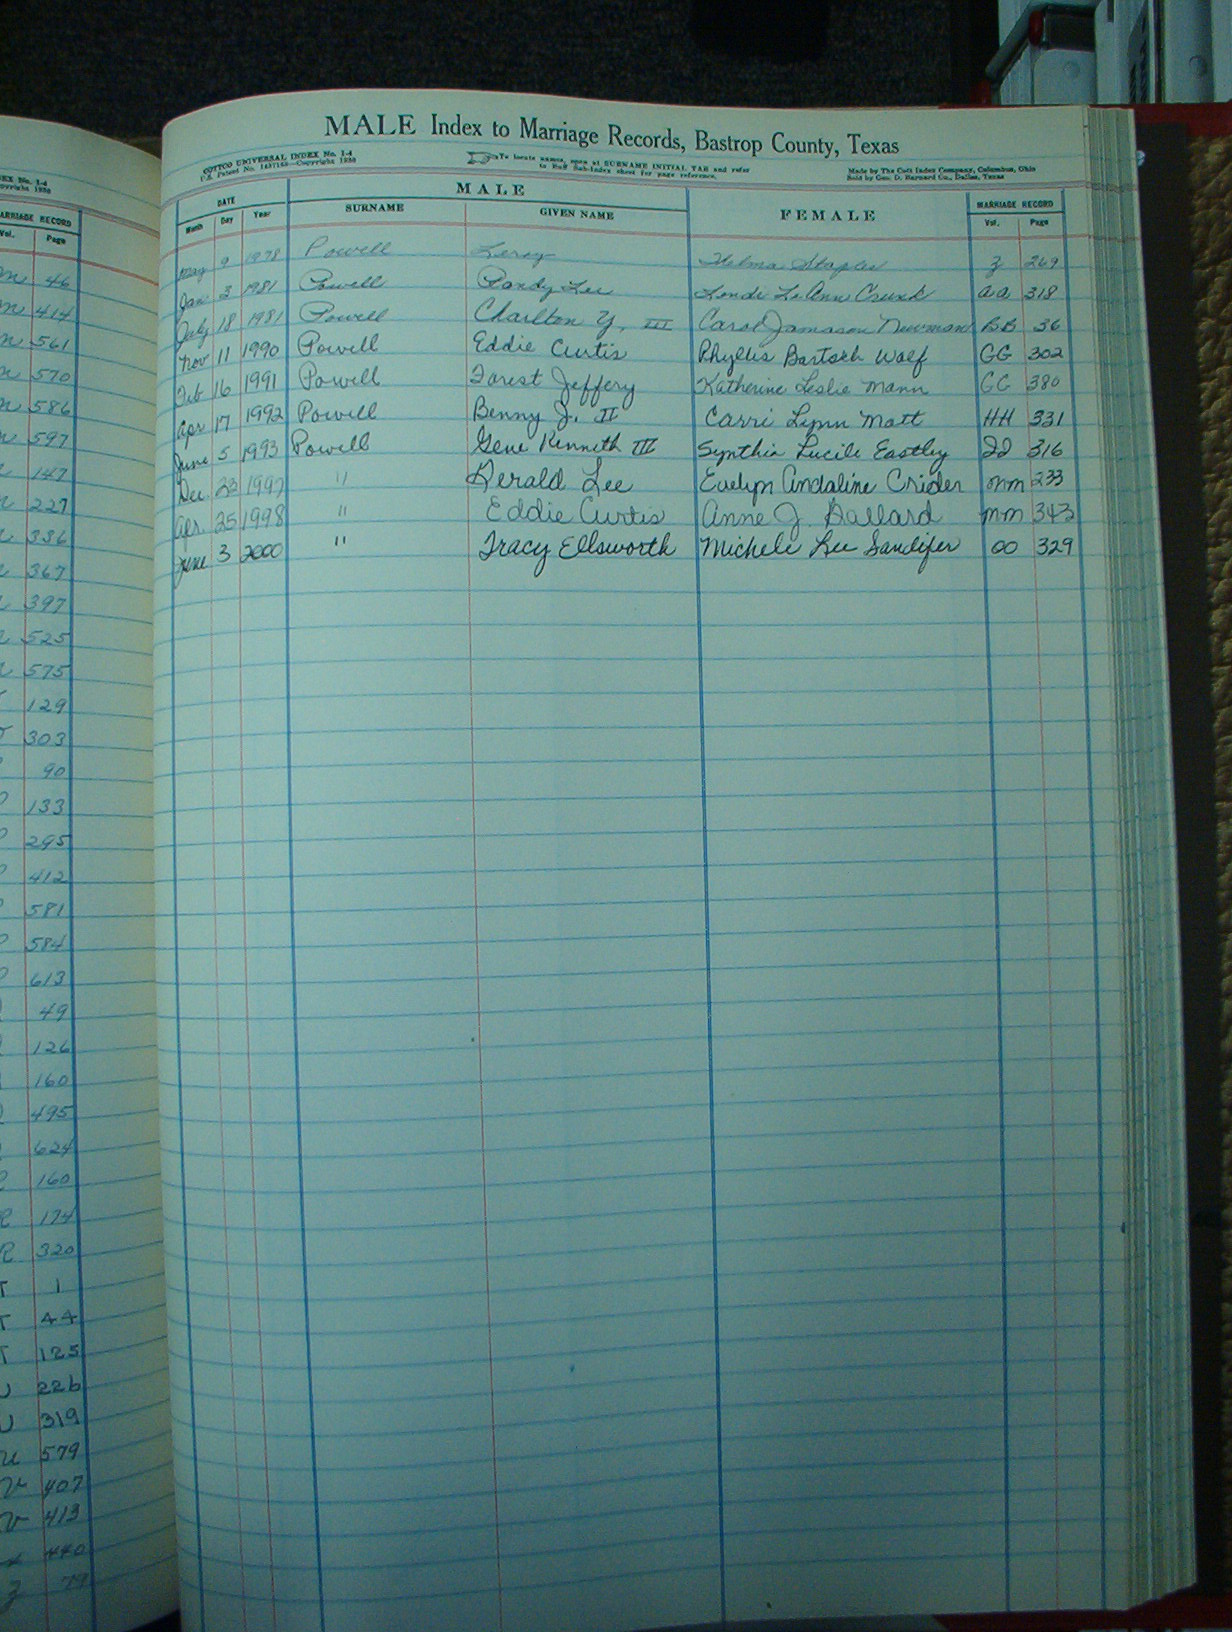 EX No. 1-4
opyright 1930
MARRIAGE RECORD
Vol. Page
m 46
m 414
m 561
m 570
m 586
m 597
147
227
336
367
397
525
575
129
303
90
133
295
412
581
584
613
49
126
160
495
624
160
R 174
R 320
T 1
T 44
T 125
U 226
U 319
u 579
v 407
v 413
440
z 79
MALE Index to Marriage Records, Bastrop County, Texas
COTTCO UNIVERSAL INDEX No. 1-4
U.S. Patent No. Copyright 1930
To locate names, open at SURNAME INITIAL TAB and refer
to Buff Sub-Index sheet for page reference.
Made by The Cott Index Company, Columbus, Ohio
Sold by Geo. D. Barnard Co., Dallas, Texas
DATE MALE FEMALE MARRIAGE RECORD
Month Day Year SURNAME GIVEN NAME Vol. Page
May 9 1978 Powell Leroy Thelma Staples Z 269
Jan 3 1981 Powell Randy Lee LeAnn aa 318
July 18 1981 Powell Charlton Y. III Carol Jamason Newman BB 36
Nov 11 1990 Powell Eddie Curtis Phyllis Bartsch Wolf GG 302
Feb 16 1991 Powell Forest Jeffery Katherine Leslie Mann GG 380
Apr 17 1992 Powell Benny J. II Carri Lynn Matt HH 331
June 5 1993 Powell Gene Kenneth III Synthia Lucile Eastley 316
Dec 23 1997 " Gerald Lee Evelyn Andaline Crider mm 233
Apr. 25 1998 " Eddie Curtis Anne J. Ballard mm 343
June 3 2000 " Tracy Ellsworth Michele Lee Sandifer 00 329